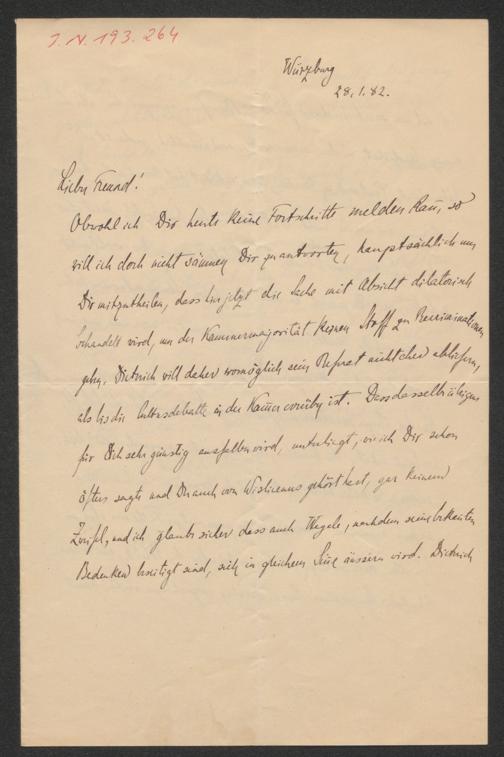 J. N. 193.264
Würzburg
28.1.82.
Lieber Freund!
Obwohl ich Dir heute keine Fortschritte melden kañ, so
will ich doch nicht säumen Dir zu antworten, hauptsächlich um
Dir mitzutheilen, dass hier jetzt die Sache mit Absicht dilatorisch
behandelt wird, um der Kammermajorität keinen Stoff zu Recriminationen
geben. Dietrich will daher womöglich sein Referat nicht eher abliefern,
als bis die Cultusdebatte in der Kam̃er vorüber ist. Dass dasselbe übrigens
für Dich sehr günstig ausfallen wird, unterliegt, wie ich Dir schon
öfters sagte und Du auch von Wislicenus gehört hast, gar keinem
Zweifel, und ich glaube sicher dass auch Wegele, nachdem seine bekañten
Bedenken beseitigt sind, sich in gleichem Siñe äussern wird. Dietrich